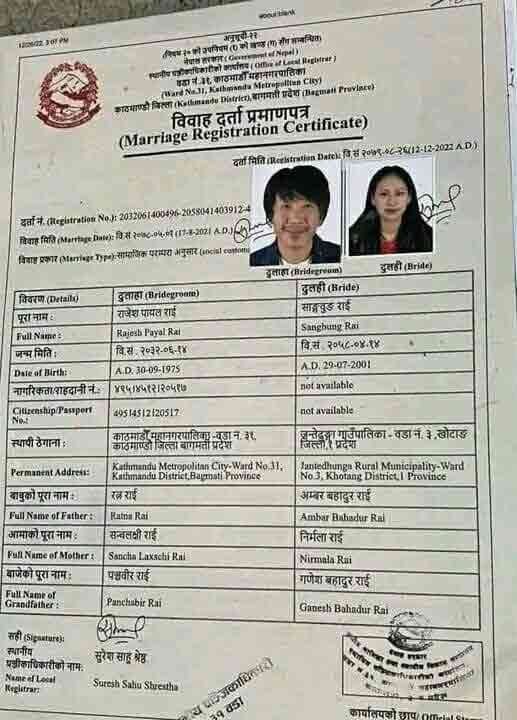 12/26/22, 3:07 PM
about:blank
अनुसूची-२२
(नियम २० को उपनियम (१) को खण्ड (ग) सँग सम्बन्धित)
नेपाल सरकार ( Government of Nepal )
स्थानीय पञ्जिकाधिकारीको कार्यालय ( Office of Local Registrar )
वडा नं.३१, काठमाडौँ महानगरपालिका
(Ward No.31, Kathmandu Metropolitan City)
काठमाण्डौ जिल्ला (Kathmandu District),बागमती प्रदेश (Bagmati Province)
विवाह दर्ता प्रमाणपत्र
(Marriage Registration Certificate)
दर्ता मिति (Registration Date): वि सं २०७९-०८-२६(12-12-2022 A.D.)
दर्ता नं. (Registration No.): 2032061400496-2058041403912-4
विवाह मिति (Marriage Date): वि.सं २०७८-०५-०१ (17-8-2021 A.D.)
विवाह प्रकार (Marriage Type):सामाजिक परम्परा अनुसार (social custom
दुलाहा (Bridegroom) दुलही (Bride)
विवरण (Details) दुलाहा (Bridegroom) दुलही (Bride)
पूरा नाम : राजेश पायल राई साङ्वुङ राई
Full Name : Rajesh Payal Rai Sangbung Rai
जन्म मिति : वि.सं. २०३२-०६-१४ वि.सं. २०५८-०४-१४
Date of Birth: A.D. 30-09-1975 A.D. 29-07-2001
नागरिकता/राहदानी नं.: ४९५१४५१२१२०५१७ not available
Citizenship/Passport No.: 49514512120517 not available
स्थायी ठेगाना : काठमाडौँ महानगरपालिका -वडा नं. ३१, काठमाण्डौ जिल्ला बागमती प्रदेश जन्तेढुङ्गा गाउँपालिका - वडा नं. ३ ,खोटाङ जिल्ला,१ प्रदेश
Permanent Address: Kathmandu Metropolitan City-Ward No.31, Kathmandu District,Bagmati Province Jantedhunga Rural Municipality-Ward No.3, Khotang District,1 Province
बाबुको पूरा नाम : रत्न राई अम्बर बहादुर राई
Full Name of Father : Ratna Rai Ambar Bahadur Rai
आमाको पूरा नाम : सन्चलक्षी राई निर्मला राई
Full Name of Mother : Sancha Laxschi Rai Nirmala Rai
बाजेको पूरा नाम : पञ्चवीर राई गणेश बहादुर राई
Full Name of Grandfather : Panchabir Rai Ganesh Bahadur Rai
सही (Signature):
स्थानीय पञ्जीकाधिकारीको नाम: सुरेश साहु श्रेष्ठ
Name of Local Registrar: Suresh Sahu Shrestha
पञ्जिकाधिकारी
३१ वडा
नेपाल सरकार
कार्यालयको छाप/ Official St